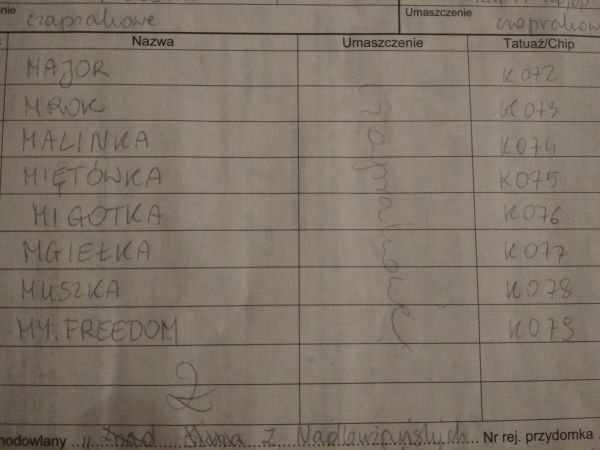 nie czaprakowe Umaszczenie czaprakow
Nazwa Umaszczenie Tatuaż/Chip
MAJOR K072
MROK K073
MALINKA K074
MIĘTÓWKA K075
MIGOTKA czaprakowe K076
MGIEŁKA K077
MUSZKA K078
MY.FREEDOM K079
hodowlany „ z Nadbużańskich Nr rej. przydomka